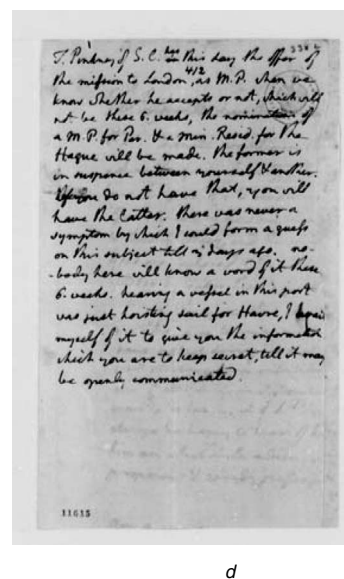 T. Pinkney of S.C. has this day the offer of
the mission to London, as M.P. when we
412
know whether he accepts or not, which will
not be these 6. weeks, the nomination of
a M.P. for Par. & a Min. Resid. for the
Hague will be made. the former is
in suspence between yourself & another.
if you do not have that, you will
have the latter. there was never a
symptom by which I could form a guess
on this subject till days ago. no-
-body here will know a word of it these
6. weeks. hearing a vessel in this port
was just hoisting sail for Havre, I
myself of it to give you the information
which you are to keep secret, till it may
be openly communicated.
11615
d